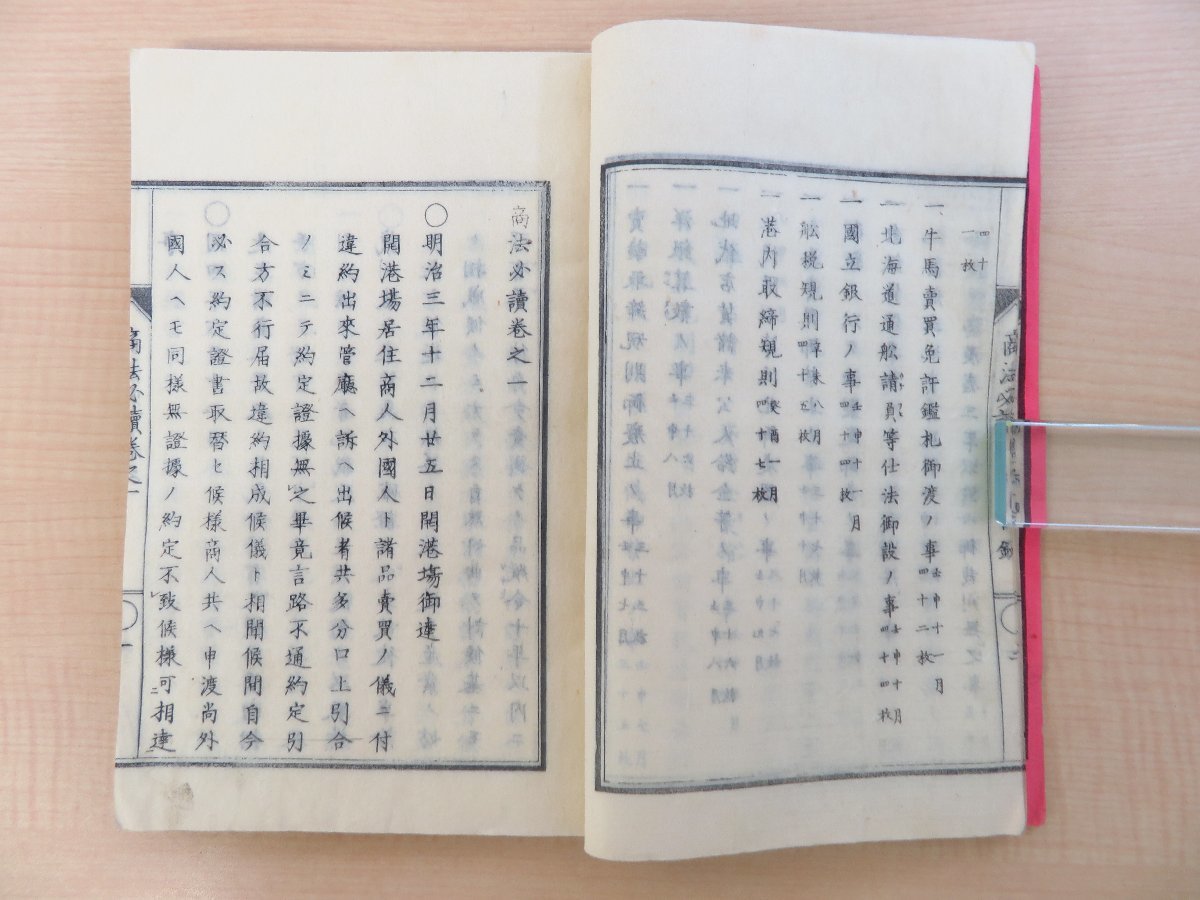 四十
一枚
一 牛馬賣買免許鑑札御渡ノ事 壬申十一月 四十二枚
一 北海道通舩請負等仕法御設ノ事 壬申十月 四十四枚
一 國立銀行ノ事 壬申十一月 四十四枚
一 舩税規則 辛未八月 四十五枚
一 港内取締規則 癸酉一月 四十七枚
商法必讀卷之一
〇明治三年十二月廿五日開港塲御達
開港塲居住商人外國人ト諸品賣買ノ儀ニ付
違約出來管廳ヘ訴ヘ出候者共多分口上引合
ノミニテ約定證據無之畢竟言路不通約定引
合方不行届故違約相成候儀ト相聞候間自今
必ス約定證書取替ヒ候樣商人共ヘ申渡尚外
國人ヘモ同樣無證據ノ約定不致候樣可相達
商法必讀卷之一
〇一